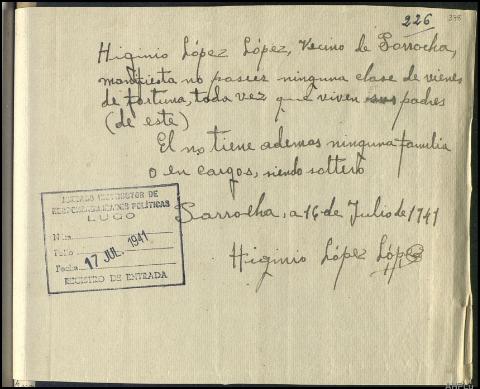 226
Higinio López López, Vecino de Sarrocha,
manifiesta no paseer ninguna clase de vienes
de fortuna, toda vez que viven sus padres
(de este)
El no tiene ademas ninguna familia
o en cargos, siendo soltero
Sarrocha, a 16 de Julio de 1941
Higinio López López
JUZGADO INSTRUCTOR DE
RESPONSABILIDADES POLÍTICAS
LUGO
Núm.
Folio
Fecha 17 JUL. 1941
REGISTRO DE ENTRADA